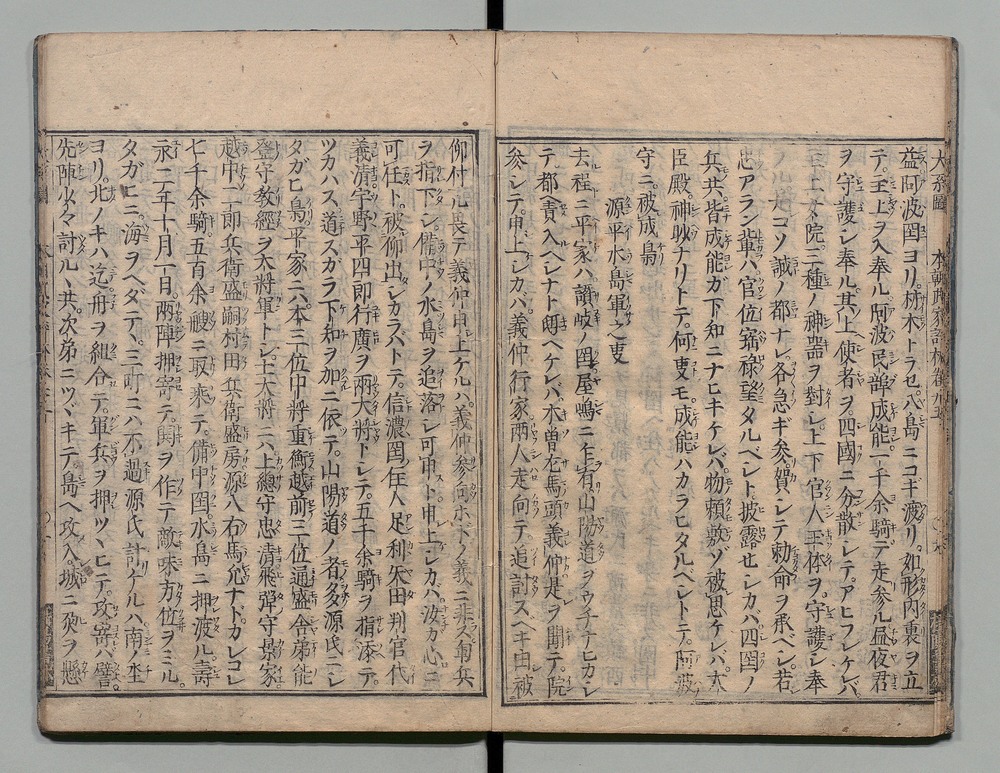 益阿波囯ヨリ材木トラセ八島ニコギ渡リ如形内裏ヲ立
テ主上ヲ入奉ル阿波民部成能一千余騎デ走参ル昼夜君
ヲ守護シ奉ル其上使者ヲ四國ニ分散シテアヒフレケルハ
三種ノ神器ヲ對シ上下官人玉体ヲ守護シ奉
コソ誠ノ都ナレ各急ギ参賀シテ勅命ヲ承ベシ若
忠アラン輩ハ官位寵禄望タルベシト披露セシカバ四囯ノ
兵共皆成能ガ下知ニナビキケレバ物頼敷ゾ被思ケレバ大
臣殿神妙ナリトテ何叓モ成能ハカラヒタルベシトテ阿波
守ニ被成鳧
源平水島軍之叓
去程ニ平家ハ讃岐ノ囯屋嶋ニ乍有山陽道ヲウチナヒカシ
テ都ヘ責入ベシナト聞ヘケレバ木曽左馬頭義仲是ヲ聞テ院
参シテ申上シカバ義仲行家両人走向テ追討スベキ由被
仰付ル畏テ義仲申上ケルハ義仲参向ホドノ義ニ非ス郎兵
ヲ指下シ備中ノ水島ヲ追落シ可申ト申上シカハ汝カ心ニ
可任ト被仰出シカラバトテ信濃囯住人足利矢田判官代
義清宇野平四郎行廣ヲ両大将トシテ五千余騎ヲ指添テ
ツカハス道スガラ下知ヲ加ニ依テ山陽道ノ者多源氏ニシ
タガヒ鳧平家ニハ本三位中将重衡越前三位通盛舎弟能
登守教經ヲ大将軍トシ士大将ニハ上總守忠清飛彈守景家
越中二郎兵衛盛嗣村田兵衛盛房源八右馬允ナドカレコレ
七千余騎五百余艘ニ取乗テ備中囯水島ニ押渡ル壽
永二年十月一日両陣押寄テ鬨ヲ作テ敵味方位ヲミル
タガヒニ海ヲヘダテヽ三町ニハ不過源氏計ケルハ南ノ地
ヨリ北ノキハ迄舟ヲ組合テ軍兵ヲ押ツヽヒテ攻寄ハ譬
先陣少々討ルヽ共次第ニツヾキテ島ヘ攻入城ニ火ヲ懸